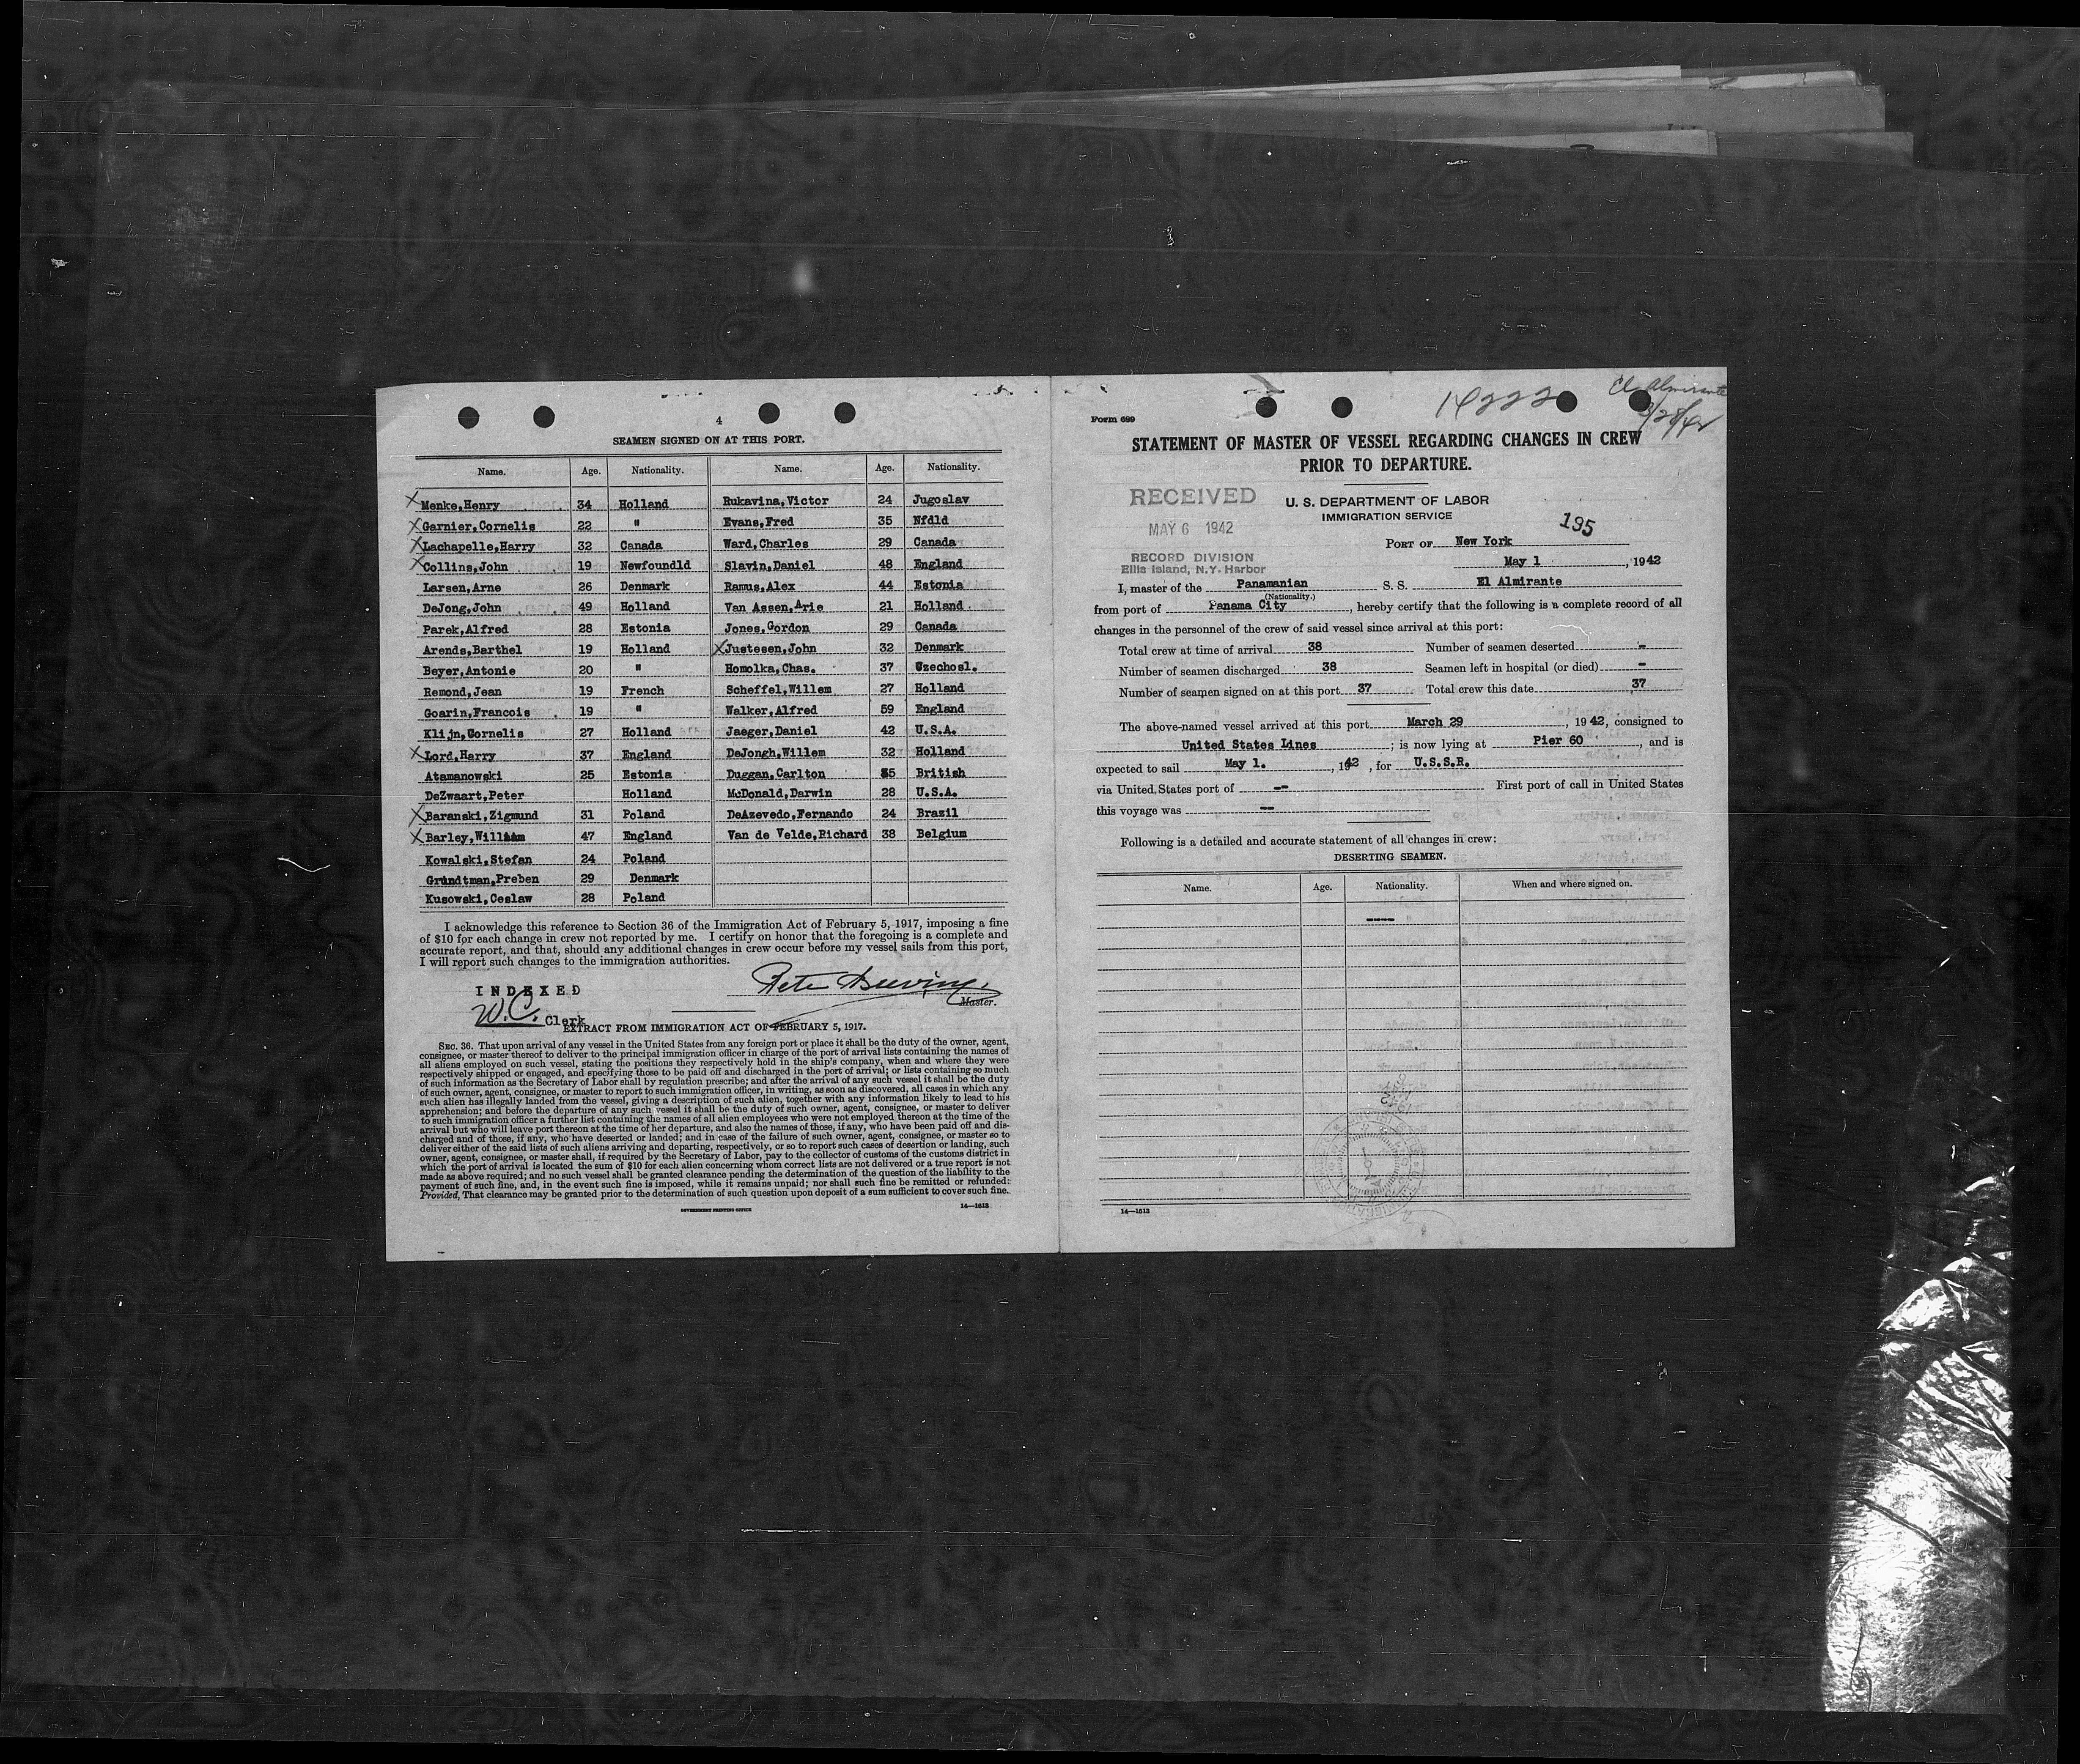 4
SEAMEN SIGNED ON AT THIS PORT.
Name. Age. Nationality. Name. Age. Nationality.
X Menke,Henry 34 Holland Rukavina,Victor 24 Jugoslav
X Garnier,Cornelis 22 " Evans,Fred 35 Nfdld
X Lachapelle,Harry 32 Canada Ward,Charles 29 Canada
X Collins,John 19 Newfoundld Slavin,Daniel 48 England
Larsen,Arne 26 Denmark Ramus,Alex 44 Estonia
DeJong,John 49 Holland Van Assen,Arie 21 Holland
Parek,Alfred 28 Estonia Jones,Gordon 29 Canada
Arends,Barthel 19 Holland X Justesen,John 32 Denmark
Beyer,Antonie 20 " Homolka,Chas. 37 Czechosl.
Remond,Jean 19 French Scheffel,Willem 27 Holland
Goarin,Francois 19 " Walker,Alfred 59 England
Klijn,Cornelis 27 Holland Jaeger,Daniel 42 U.S.A.
X Lord,Harry 37 England DeJongh,Willem 32 Holland
Atamanowski 25 Estonia Duggan,Carlton British
DeZwaart,Peter Holland McDonald,Darwin 28 U.S.A.
X Baranski,Zigmund 31 Poland DeAzevedo,Fernando 24 Brazil
X Barley,William 47 England Van de Velde,Richard 38 Belgium
Kowalski,Stefan 24 Poland
Grundtman,Preben 29 Denmark
Kusowski,Ceslaw 28 Poland
I acknowledge this reference to Section 36 of the Immigration Act of February 5, 1917, imposing a fine
of $10 for each change in crew not reported by me. I certify on honor that the foregoing is a complete and
accurate report, and that, should any additional changes in crew occur before my vessel sails from this port,
I will report such changes to the immigration authorities.
Pete
Master.
INDEXED
W.C. Clerk
EXTRACT FROM IMMIGRATION ACT OF FEBRUARY 5, 1917.
SEC. 36. That upon arrival of any vessel in the United States from any foreign port or place it shall be the duty of the owner, agent,
consignee, or master thereof to deliver to the principal immigration officer in charge of the port of arrival lists containing the names of
all aliens employed on such vessel, stating the positions they respectively hold in the ship's company, when and where they were
respectively shipped or engaged, and specifying those to be paid off and discharged in the port of arrival; or lists containing so much
of such information as the Secretary of Labor shall by regulation prescribe; and after the arrival of any such vessel it shall be the duty
of such owner, agent, consignee, or master to report to such immigration officer, in writing, as soon as discovered, all cases in which any
such alien has illegally landed from the vessel, giving a description of such alien, together with any information likely to lead to his
apprehension; and before the departure of any such vessel it shall be the duty of such owner, agent, consignee, or master to deliver
to such immigration officer a further list containing the names of all alien employees who were not employed thereon at the time of the
arrival but who will leave port thereon at the time of her departure, and also the names of those, if any, who have been paid off and dis-
charged and of those, if any, who have deserted or landed; and in case of the failure of such owner, agent, consignee, or master so to
deliver either of the said lists of such aliens arriving and departing, respectively, or so to report such cases of desertion or landing, such
owner, agent, consignee, or master shall, if required by the Secretary of Labor, pay to the collector of customs of the customs district in
which the port of arrival is located the sum of $10 for each alien concerning whom correct lists are not delivered or a true report is not
made as above required; and no such vessel shall be granted clearance pending the determination of the question of the liability to the
payment of such fine, and, in the event such fine is imposed, while it remains unpaid; nor shall such fine be remitted or refunded:
Provided, That clearance may be granted prior to the determination of such question upon deposit of a sum sufficient to cover such fine.
GOVERNMENT PRINTING OFFICE 14—1613
14222
El Almirante
Form 689
STATEMENT OF MASTER OF VESSEL REGARDING CHANGES IN CREW
PRIOR TO DEPARTURE.
RECEIVED
MAY 6 1942
RECORD DIVISION
Ellis Island, N.Y. Harbor
U. S. DEPARTMENT OF LABOR
IMMIGRATION SERVICE
195
PORT OF New York
May 1, 1942
I, master of the Panamanian S. S. El Almirante
(Nationality.)
from port of Panama City, hereby certify that the following is a complete record of all
changes in the personnel of the crew of said vessel since arrival at this port:
Total crew at time of arrival 38 Number of seamen deserted -
Number of seamen discharged 38 Seamen left in hospital (or died) -
Number of seamen signed on at this port 37 Total crew this date 37
The above-named vessel arrived at this port March 29, 1942, consigned to
United States Lines; is now lying at Pier 60, and is
expected to sail May 1., 1942, for U.S.S.R.
via United States port of -- First port of call in United States
this voyage was --
Following is a detailed and accurate statement of all changes in crew:
DESERTING SEAMEN.
Name. Age. Nationality. When and where signed on.
----
14—1613